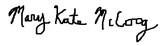 Mary Kate McCoog